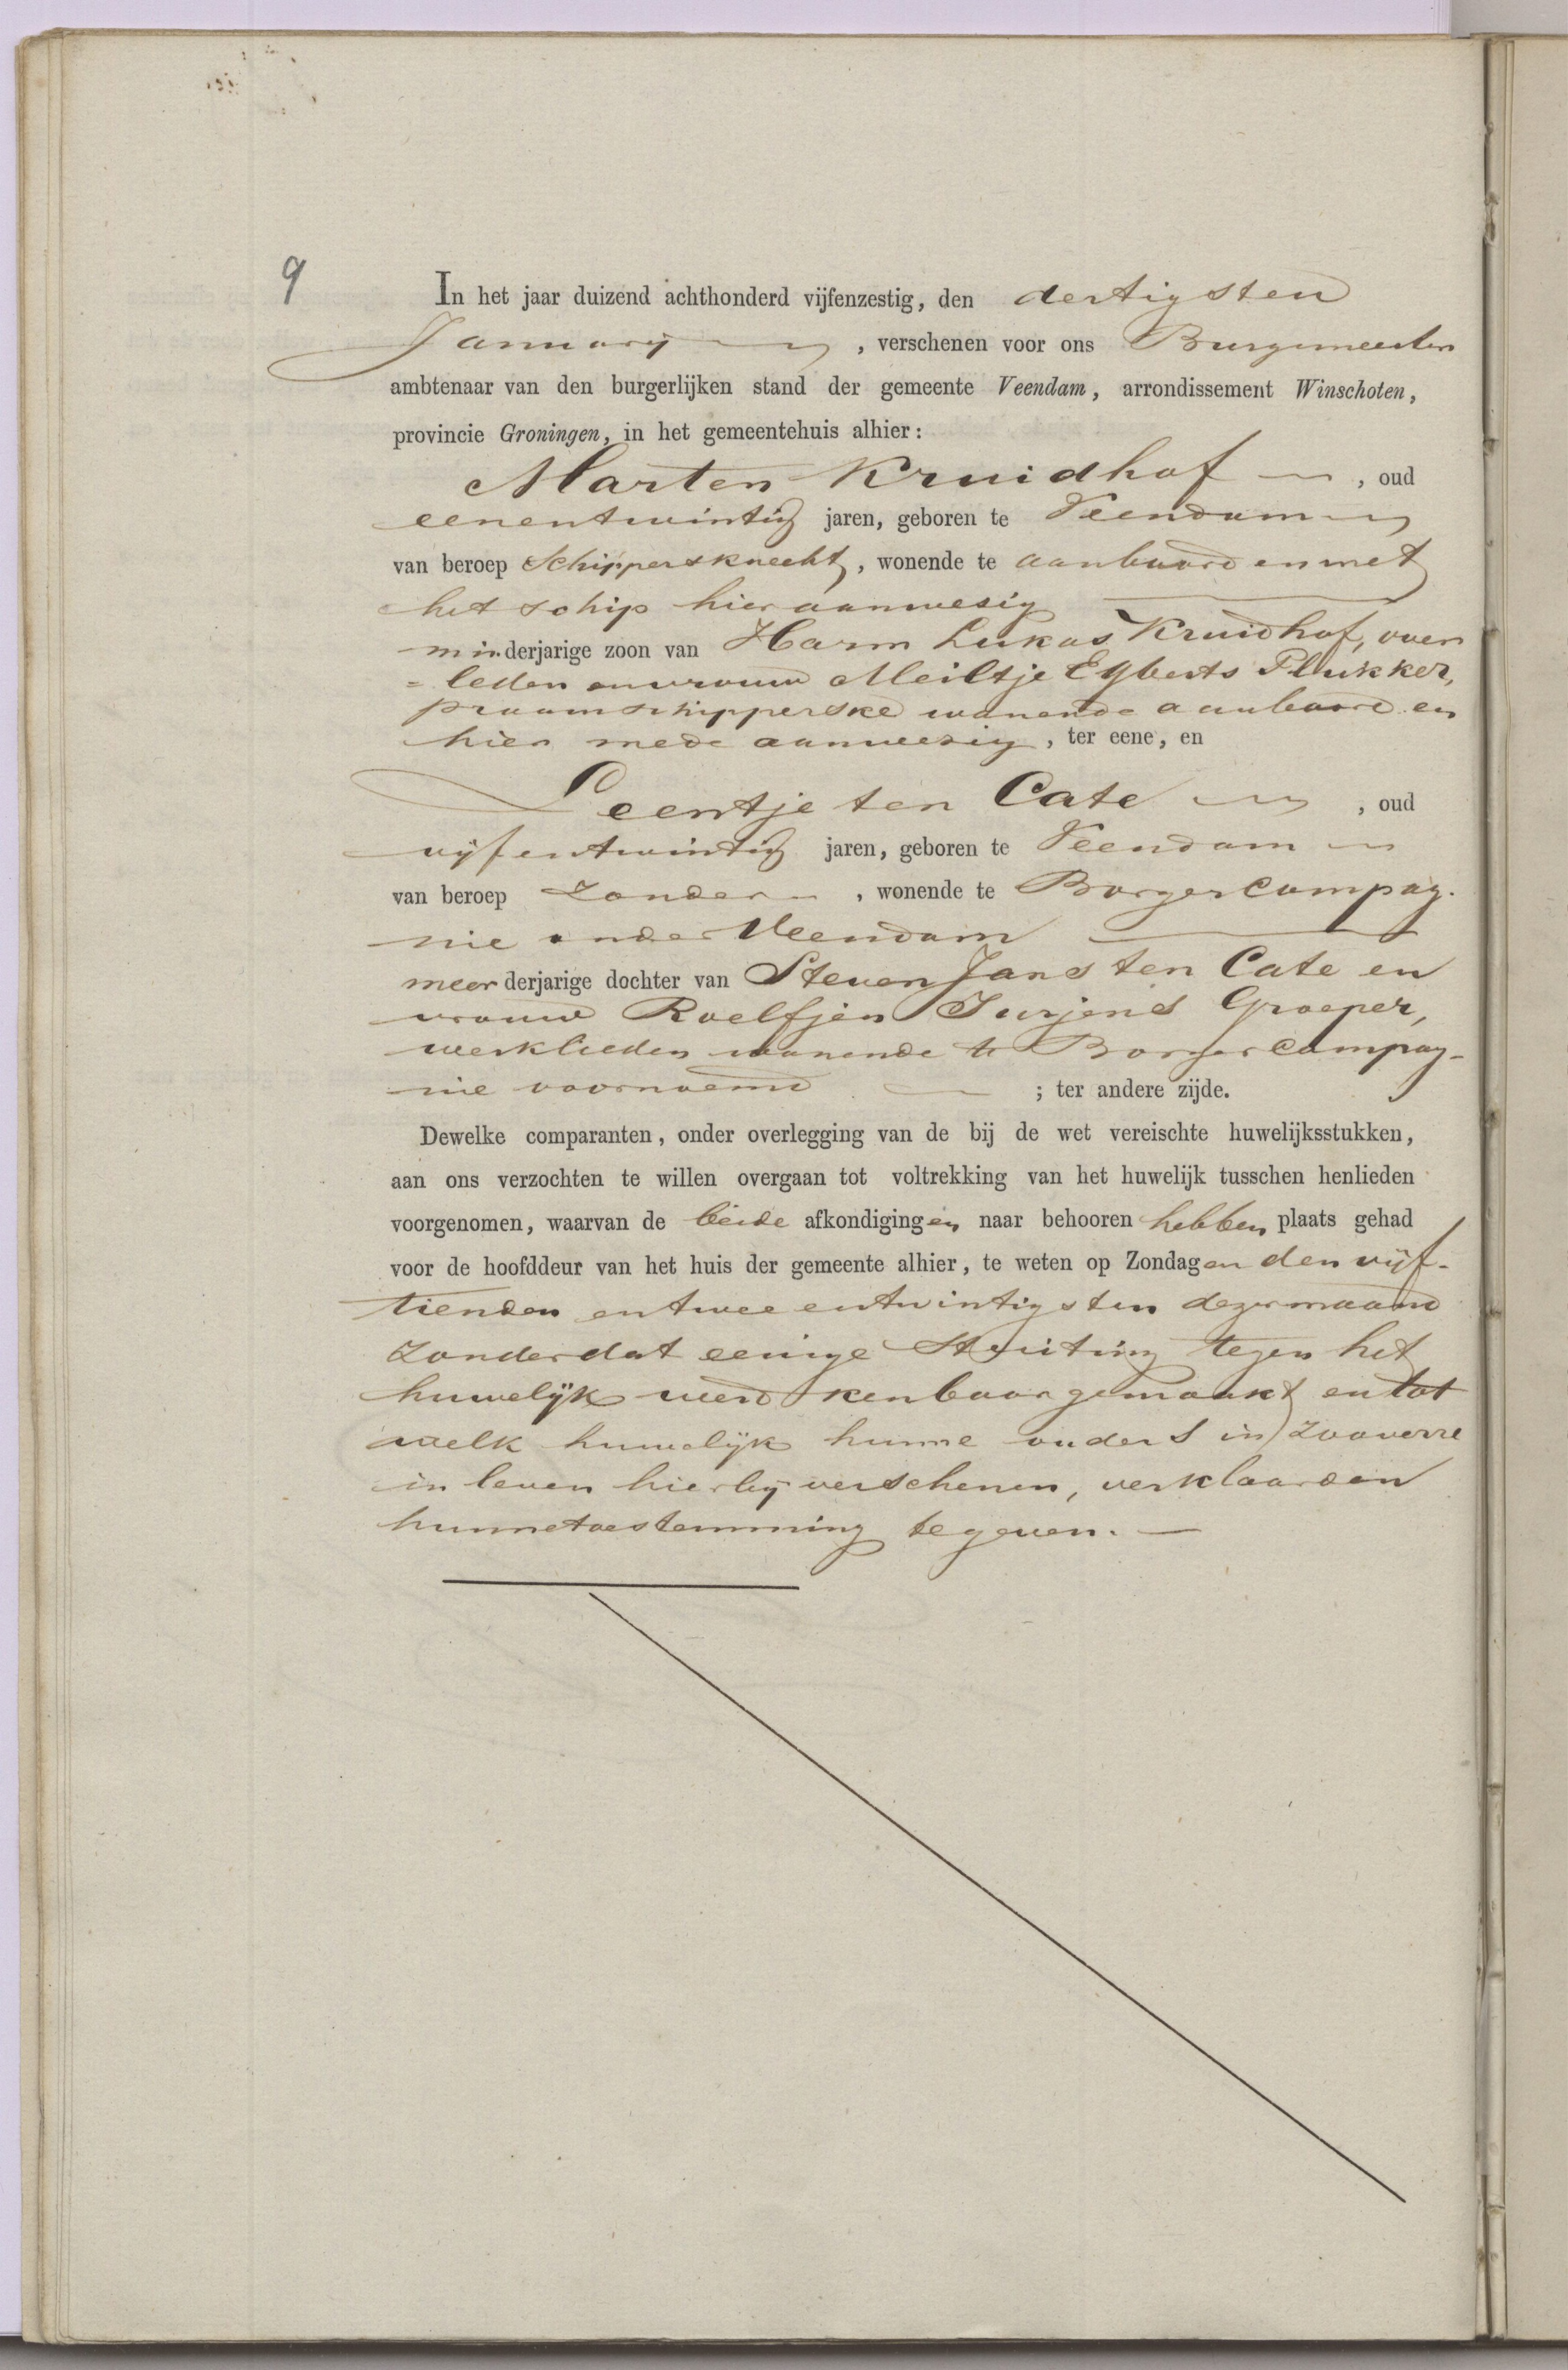 9
In het jaar duizend achthonderd vijfenzestig, den dertigsten
Januarij, verschenen voor ons Burgemeester
ambtenaar van den burgerlijken stand der gemeente Veendam, arrondissement Winschoten,
provincie Groningen, in het gemeentehuis alhier:
Marten Kruidhof, oud
eenentwintig jaren, geboren te Veendam
van beroep Schippersknecht, wonende te aanboord en met
het schip hier aanwezig
minderjarige zoon van Harm Lukas Kruidhof, over
=leden en vrouw Meiltje Egberts Plukker,
praamschipperske wonende aanboord en
hier mede aanwezig, ter eene, en
Leentje ten Cate, oud
vijfentwintig jaren, geboren te Veendam
van beroep Zonder, wonende te Borgercompag-
nie onder Veendam
meerderjarige dochter van Steven Jans ten Cate en
vrouw Roelfjen Jurjens Groeper,
werklieden wonende te Borgercompag-
nie voornoemd; ter andere zijde.
Dewelke comparanten, onder overlegging van de bij de wet vereischte huwelijksstukken,
aan ons verzochten te willen overgaan tot voltrekking van het huwelijk tusschen henlieden
voorgenomen, waarvan de beide afkondigingen naar behooren hebben plaats gehad
voor de hoofddeur van het huis der gemeente alhier, te weten op Zondagen den vijf-
tienden en twee entwintigsten dezer maand
zonder dat eenige Stuiting tegen het
huwelijk werd kenbaar gemaakt en tot
welk huwelijk hunne ouders in zooverre
in leven hierbij verschenen, verklaarden
hunne toestemming te geven.